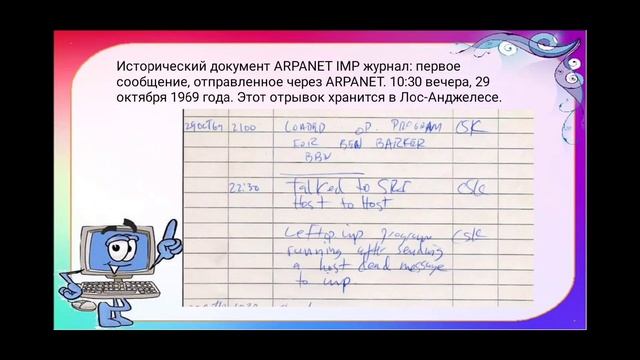 Исторический документ ARPANET IMP журнал: первое
сообщение, отправленное через ARPANET. 10:30 вечера, 29
октября 1969 года. Этот отрывок хранится в Лос-Анджелесе.
29OCT69 2100 LOADED OP. PROGRAM CSK
FOR BEN BARKER
BBN
22:30 Talked to SRI CSK
Host to Host
Left imp program CSK
running after sending
a host dead message
to imp.